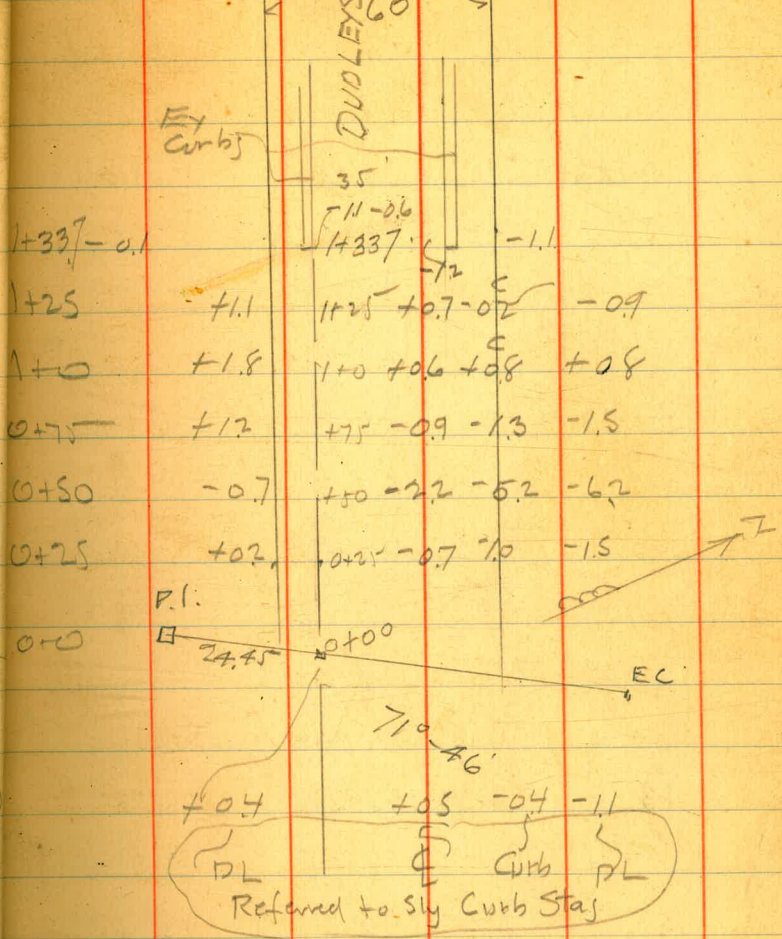 60
DUDLEYS
Ey
Curbs
35'
-1.1 -0.6
1+337 - 0.1 1+337 -1.1
-1.2
C
1+25 +1.1 1+25 +0.7 -0.2 -0.9
C
1+0 +1.8 1+0 +0.6 +0.8 +0.8
0+75 +1.2 +75 -0.9 -1.3 -1.5
0+50 -0.7 +50 -2.2 -5.2 -6.2
0+25 +0.2 0+25 -0.7 -1.0 -1.5
P.I.
0+0 24.45 0+00
EC
71°-46'
+0.4 +0.5 -0.4 -1.1
PL ℄ Curb PL
Referred to Sly Curb Stas